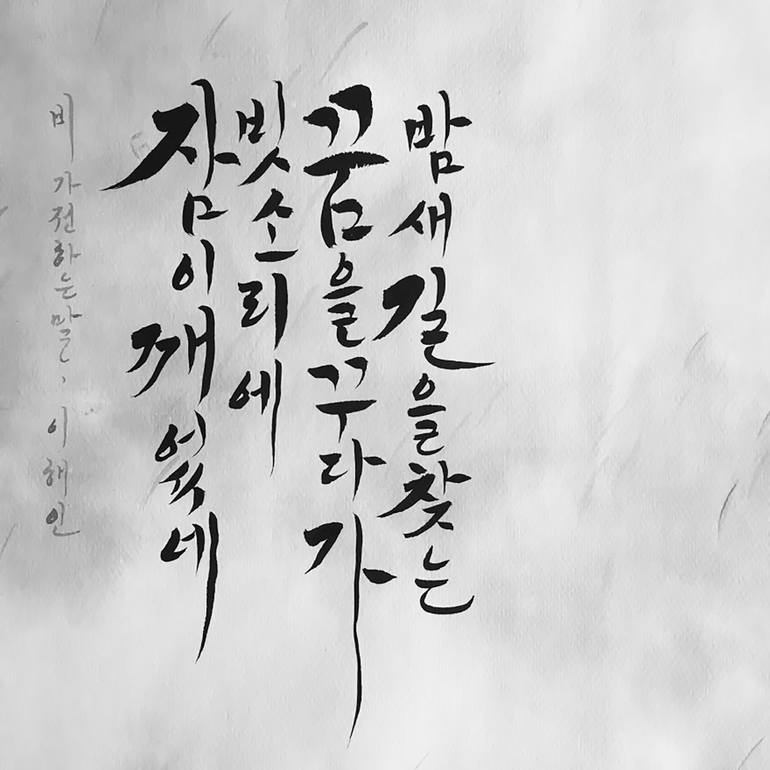 밤새 길을 찾는
꿈을 꾸다가
빗소리에
잠이 깨었네
비가 전하는 말, 이해인